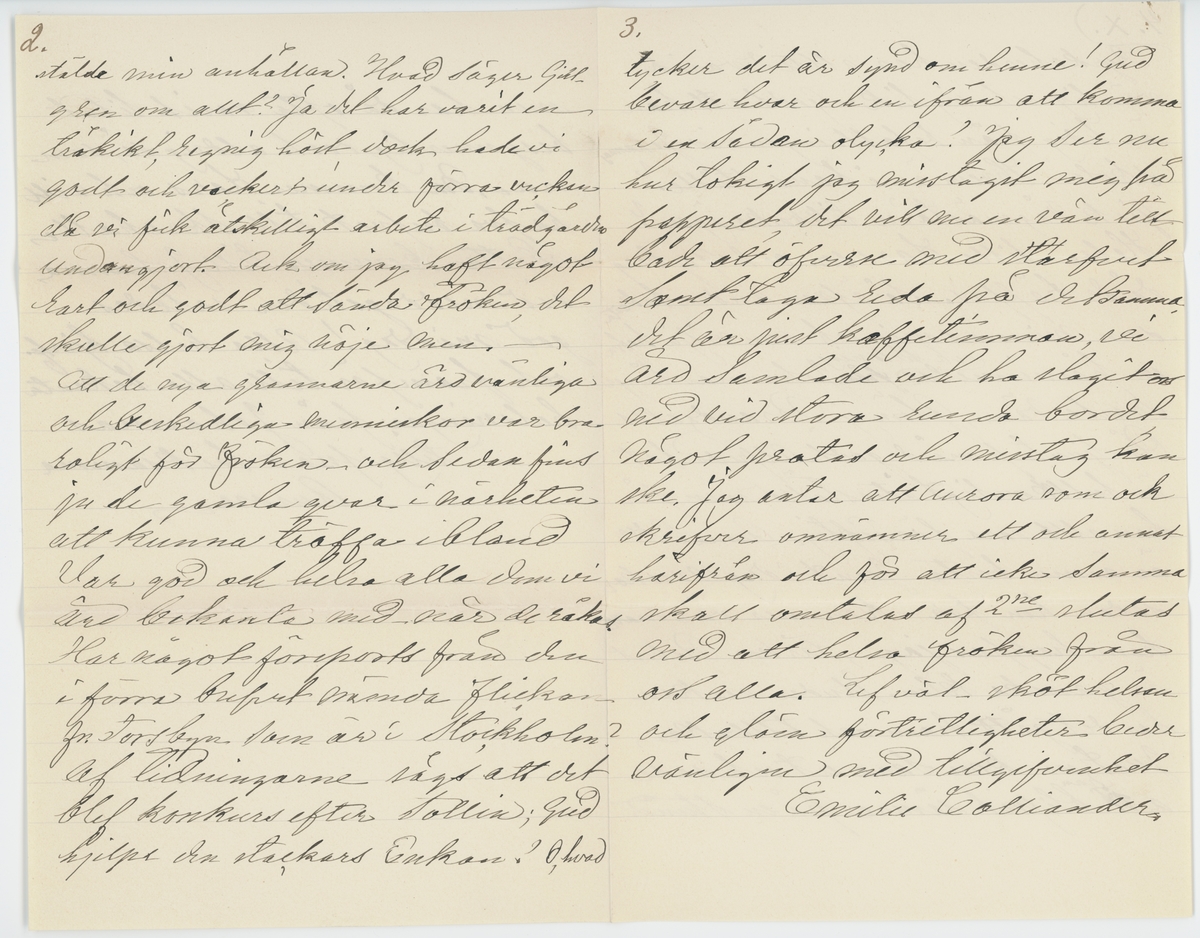 2.
stälde min anhållan. Hvad säger Gull-
gren om allt? Ja det har varit en
tråkikt, regnig höst, dock hade vi
godt och vackert under förra veckan
då vi fick åtskilligt arbete i trädgården
undangjort. Ack om jag haft något
rart och godt att sända Fröken, det
skulle gjort mig nöje men. —
Att de nya grannarne äro vänliga
och beskedliga menniskor var bra
roligt för Fröken och sedan fins
ju de gamla qvar i närheten
att kunna träffa ibland
Var god och helsa alla dem vi
äro bekanta med när de råkas.
Har något försports från den
i förra brefvet nämda flickan
fr. Torsbyn som är i Stockholm?
af tidningarne sågs att det
blef konkurs efter Tollin; Gud
hjelpe den stackars Enkan! O, hvad
3.
tycker det är synd om henne! Gud
bevare hvar och en ifrån att komma
i en sådan olycka! Jag ser nu
hur tokigt jag misstagit mig på
papperet, det vill nu en vän till
både att öfverse med
samt taga reda på detsamma,
det är just kaffetimman, vi
äro samlade och ha slagit oss
ned vid stora runda bordet
något pratas och misstag kan
ske. Jag antar att Aurora som ock
skrifver omnämner ett och annat
härifrån och för att icke samma
skall omtalas af 2ne slutas
med att helsa fröken från
oss alla. Lef väl sköt helsan
och glöm förtretligheter beder
vänligen med tillgifvenhet
Emilie Colliander.